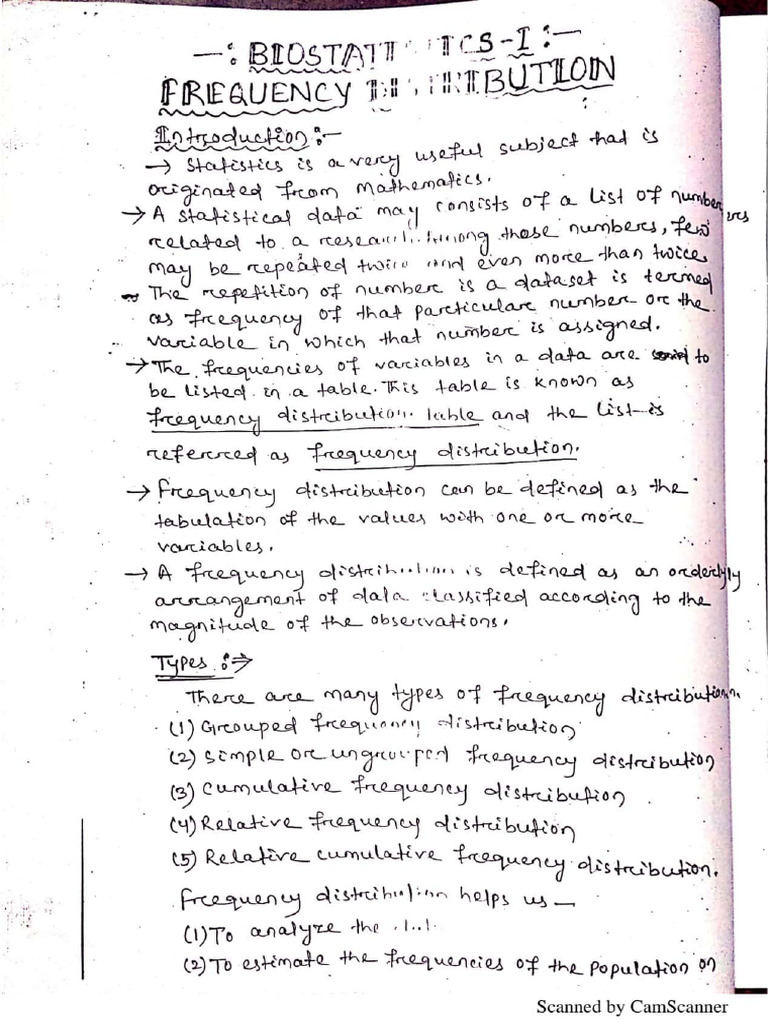 —: BIOSTATISTICS-I :—
FREQUENCY DISTRIBUTION
Introduction:—
→ Statistics is a very useful subject that is
originated from Mathematics.
→ A statistical data may consists of a list of numbers
related to a research. Among those numbers, few
may be repeated twice and even more than twice.
→ The repetition of number is a dataset is termed
as frequency of that particular number or the
variable in which that number is assigned.
→ The frequencies of variables in a data are to
be listed in a table. This table is known as
frequency distribution table and the list is
referred as frequency distribution.
→ Frequency distribution can be defined as the
tabulation of the values with one or more
variables.
→ A frequency distribution is defined as an orderlyly
arrangement of data classified according to the
magnitude of the observations.
Types :⇒
There are many types of frequency distribution.
(1) Grouped frequency distribution
(2) Simple or ungrouped frequency distribution
(3) Cumulative frequency distribution
(4) Relative frequency distribution
(5) Relative cumulative frequency distribution.
Frequency distribution helps us —
(1) To analyze the
(2) To estimate the frequencies of the population on
Scanned by CamScanner